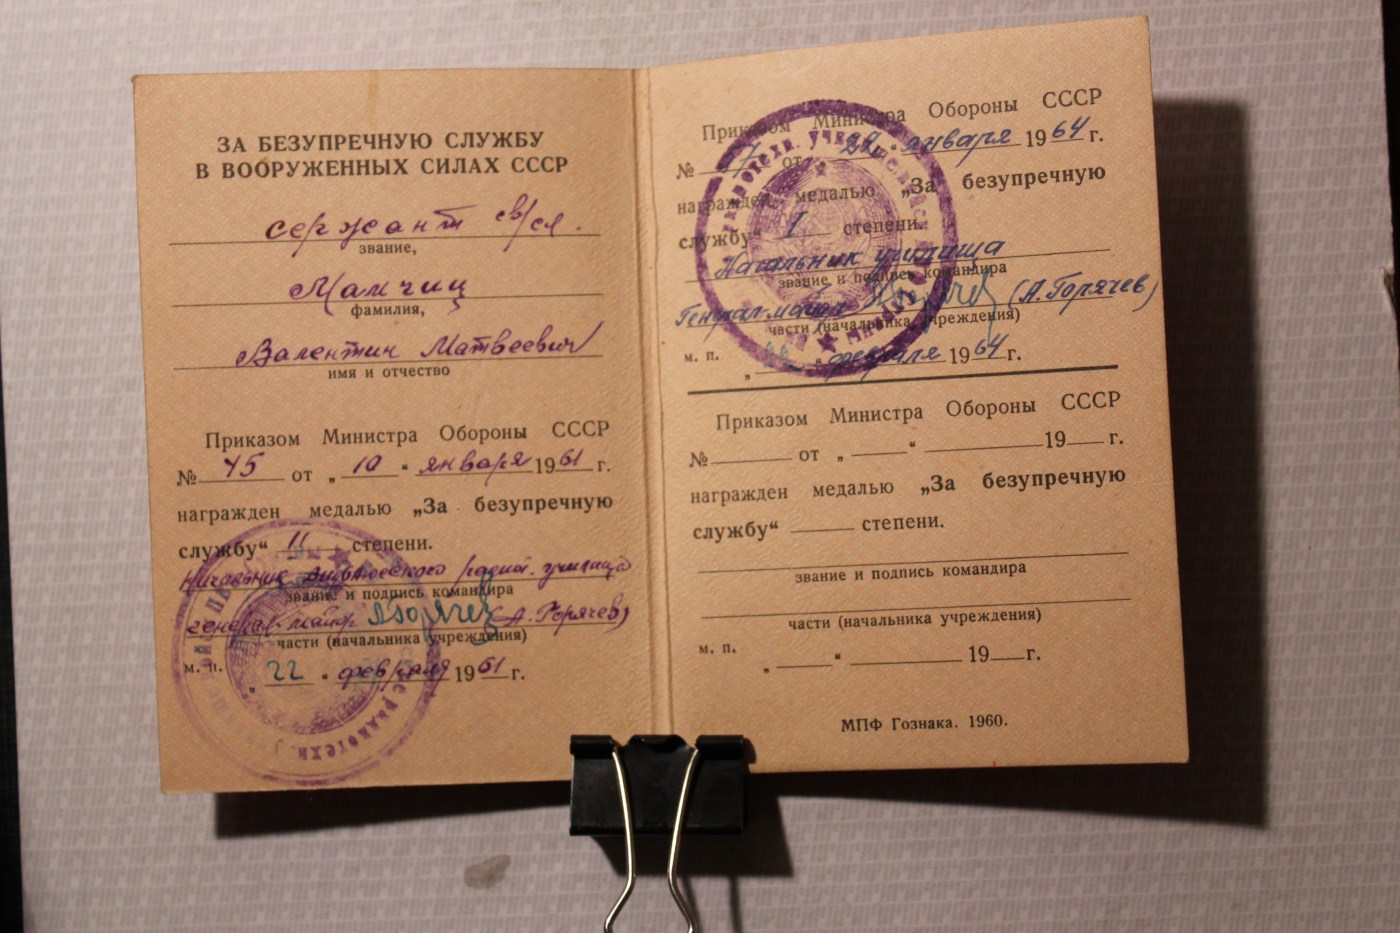 ЗА БЕЗУПРЕЧНУЮ СЛУЖБУ
В ВООРУЖЕННЫХ СИЛАХ СССР
сержант св/сл.
звание,
Мамчиц
фамилия,
Валентин Матвеевич
имя и отчество
Приказом Министра Обороны СССР
№ 45 от „ 10 “ января 1961 г.
награжден медалью „За безупречную
службу“ II степени.
Начальник Вильнюсского училища
звание и подпись командира
генерал-майор (А. Горячев)
части (начальника учреждения)
м. п.
„ 22 “ февраля 1961 г.
Приказом Министра Обороны СССР
№ 7 от „ 22 “ января 1964 г.
награжден медалью „За безупречную
службу“ I степени.
Начальник училища
звание и подпись командира
Генерал-майор (А. Горячев)
части (начальника учреждения)
м. п.
„ “ февраля 1964 г.
Приказом Министра Обороны СССР
№ от „ “ 19 г.
награжден медалью „За безупречную
службу“ степени.
звание и подпись командира
части (начальника учреждения)
м. п.
„ “ 19 г.
МПФ Гознака. 1960.